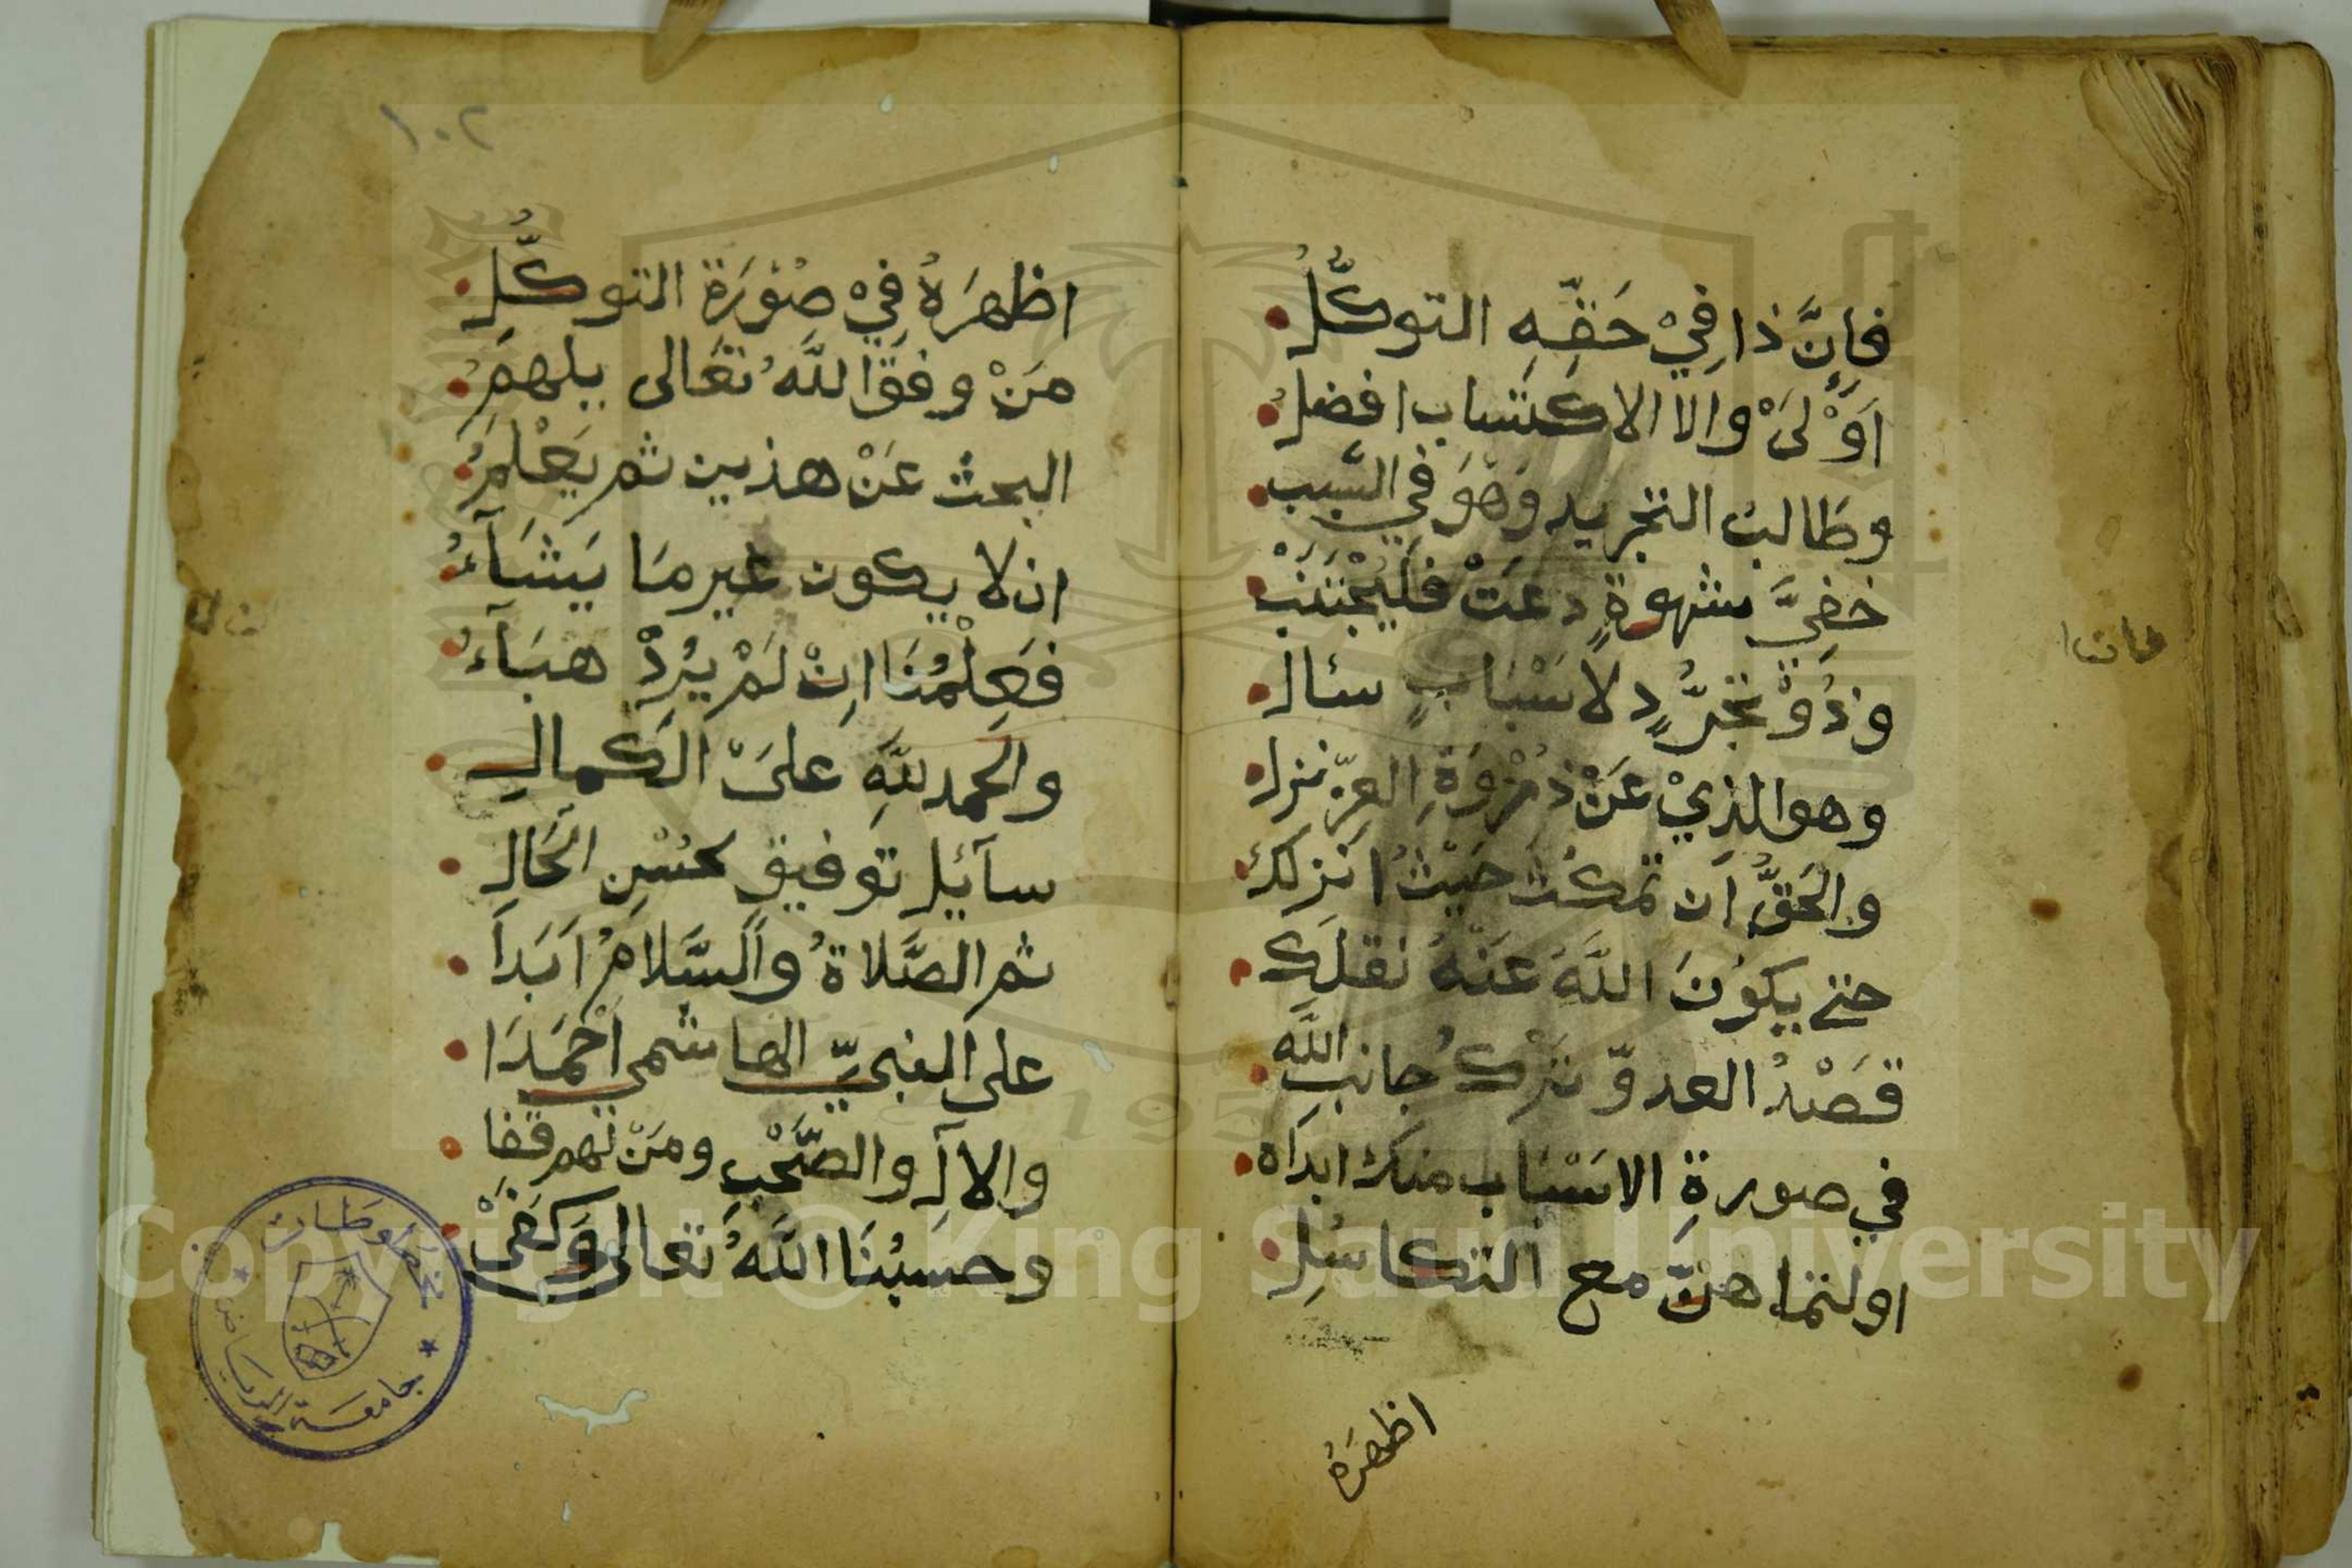 فَاِنَّ ذا فِيْ حَقِّهِ التوكُّلُ
اَوْلَىْ والا الاكتساب افضلُ
وطَالبُ التجريد وَهْوَ في السَّبب
خفِيَّ شهوةٍ دعَتْ فَلْيَجْتَنَبْ
وذُوْ تَجَرُّدٍ لاسْبَابٍ سئال
وهو الذِيْ عَنْ ذُرْوَةِ العِزّ نزل
والحَقُّ اَن تمكث حَيْثُ انزلَكَ
حتى يكوُنَ اللَّهُ عَنْهُ نقلَك
قَصْدُ العدوّ تَرْكُ جانب اللَّه
في صورةِ الاسْبَاب منك ابدَاه
او لتَمَاهُنٍّ مع التكاسُلِ
اظهرَهُ
عانا
١٠٢
اظهرَهُ فِيْ صُوْرَة التوكُّلِ
مَنْ وفقَ اللَّهُ تعَالى يلهمَُ
البحث عَنْ هذين ثم يَعْلَمُ
ان لا يكون غير مَا يَشَآءُ
فَعِلْمُنَا اِنْ لَمْ يُرِدْ هبَآءُ
والحمد للَّهِ علىَ الكمال
سآئِل توفيقٍ لحُسْنِ الحَالِ
ثم الصَّلاةُ والسَّلامُ اَبَداَ
على النبيِّ الهاشمى اَحْمَدَا
والاۤلِ والصَّحْبِ ومَنْ لهم قفا
وحسبُنَا اللَّهُ تعالى وكَفَىْ
مخطوطات
جامعة الرياض
Copyright © King Saud University
195